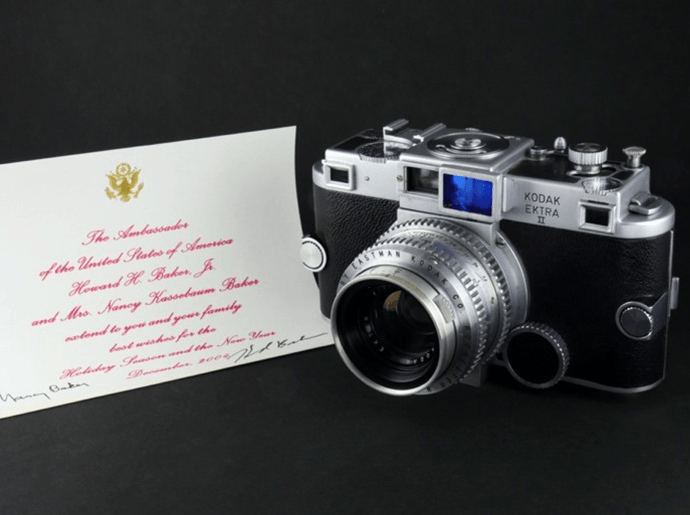 The Ambassador
of the United States of America
Howard H. Baker, Jr.
and Mrs. Nancy Kassebaum Baker
extend to you and your family
best wishes for the
Holiday Season and the New Year
December, 2002
Nancy Baker
KODAK
EKTRA
II
EASTMAN KODAK CO